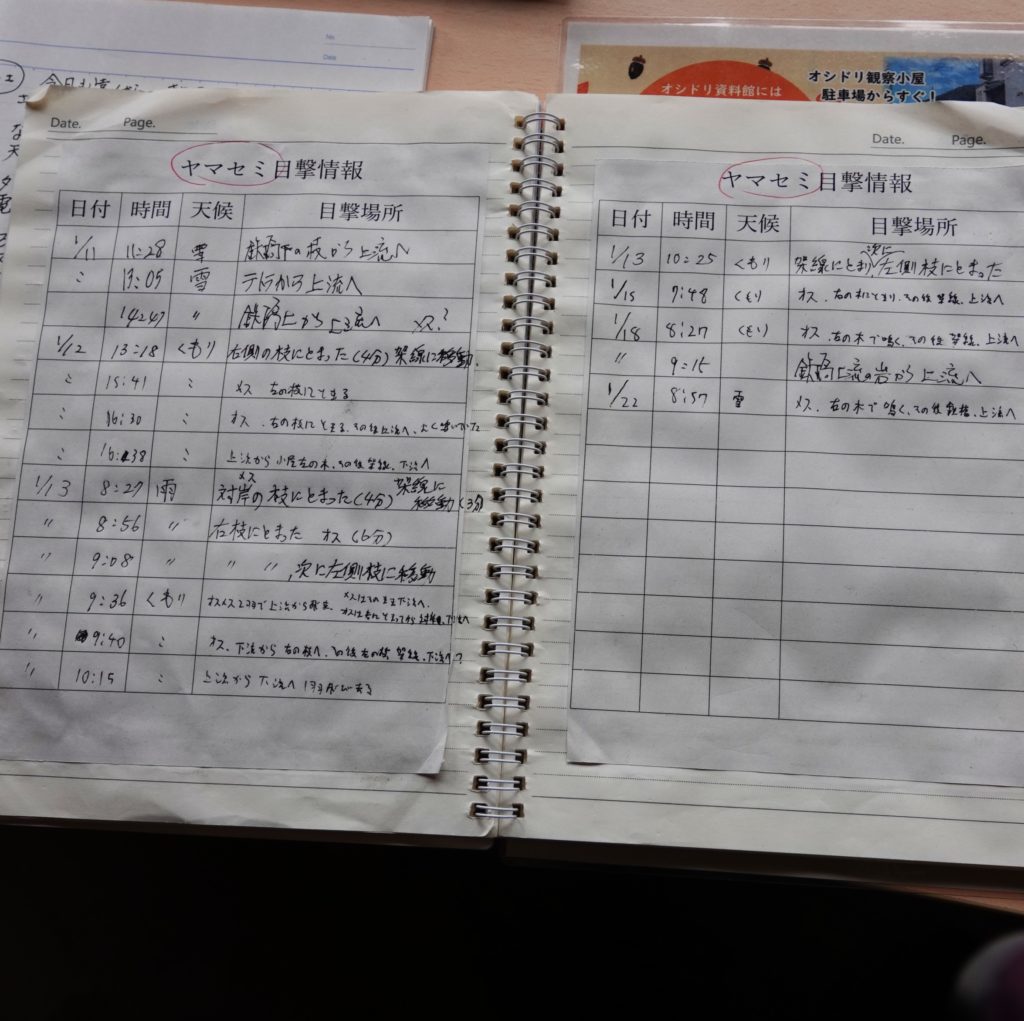 No.
Date
オシドリ観察小屋
駐車場からすぐ!
オシドリ資料館には
Date. Page.
ヤマセミ目撃情報
日付 時間 天候 目撃場所
1/11 11:28 雪 鉄橋下の枝から上流へ
〃 13:05 雪 テトラから上流へ
14:47 〃 鉄橋上から上流へ メス?
1/12 13:18 くもり 右側の枝にとまった(4分)架線に移動.
〃 15:41 〃 メス 左の枝にとまる
〃 16:30 〃 オス.右の枝にとまる.その後上流へ.よく鳴いていた
〃 16:38 〃 上流から小屋左の木.その後架線.下流へ
1/13 8:27 雨 メス 対岸の枝にとまった(4分) 架線に移動(3分)
〃 8:56 〃 右枝にとまった オス(6分)
〃 9:08 〃 〃 〃,次に左側枝に移動
〃 9:36 くもり オスメス2羽で上流から メスはそのまま下流へ.
〃 9:40 〃 オス.下流から右の枝へ.その後左の枝.架線.下流へ
〃 10:15 〃 上流から下流へ 1羽
Date. Page.
ヤマセミ目撃情報
日付 時間 天候 目撃場所
1/13 10:25 くもり 架線にとまり次に左側枝にとまった
1/15 7:48 くもり オス.右の木にとまり.その後架線.上流へ
1/18 8:27 くもり オス.右の木で鳴く.その後架線.上流へ
〃 9:15 鉄橋上流の岩から上流へ
1/22 8:57 雪 メス.右の木で鳴く.その後鉄橋.上流へ